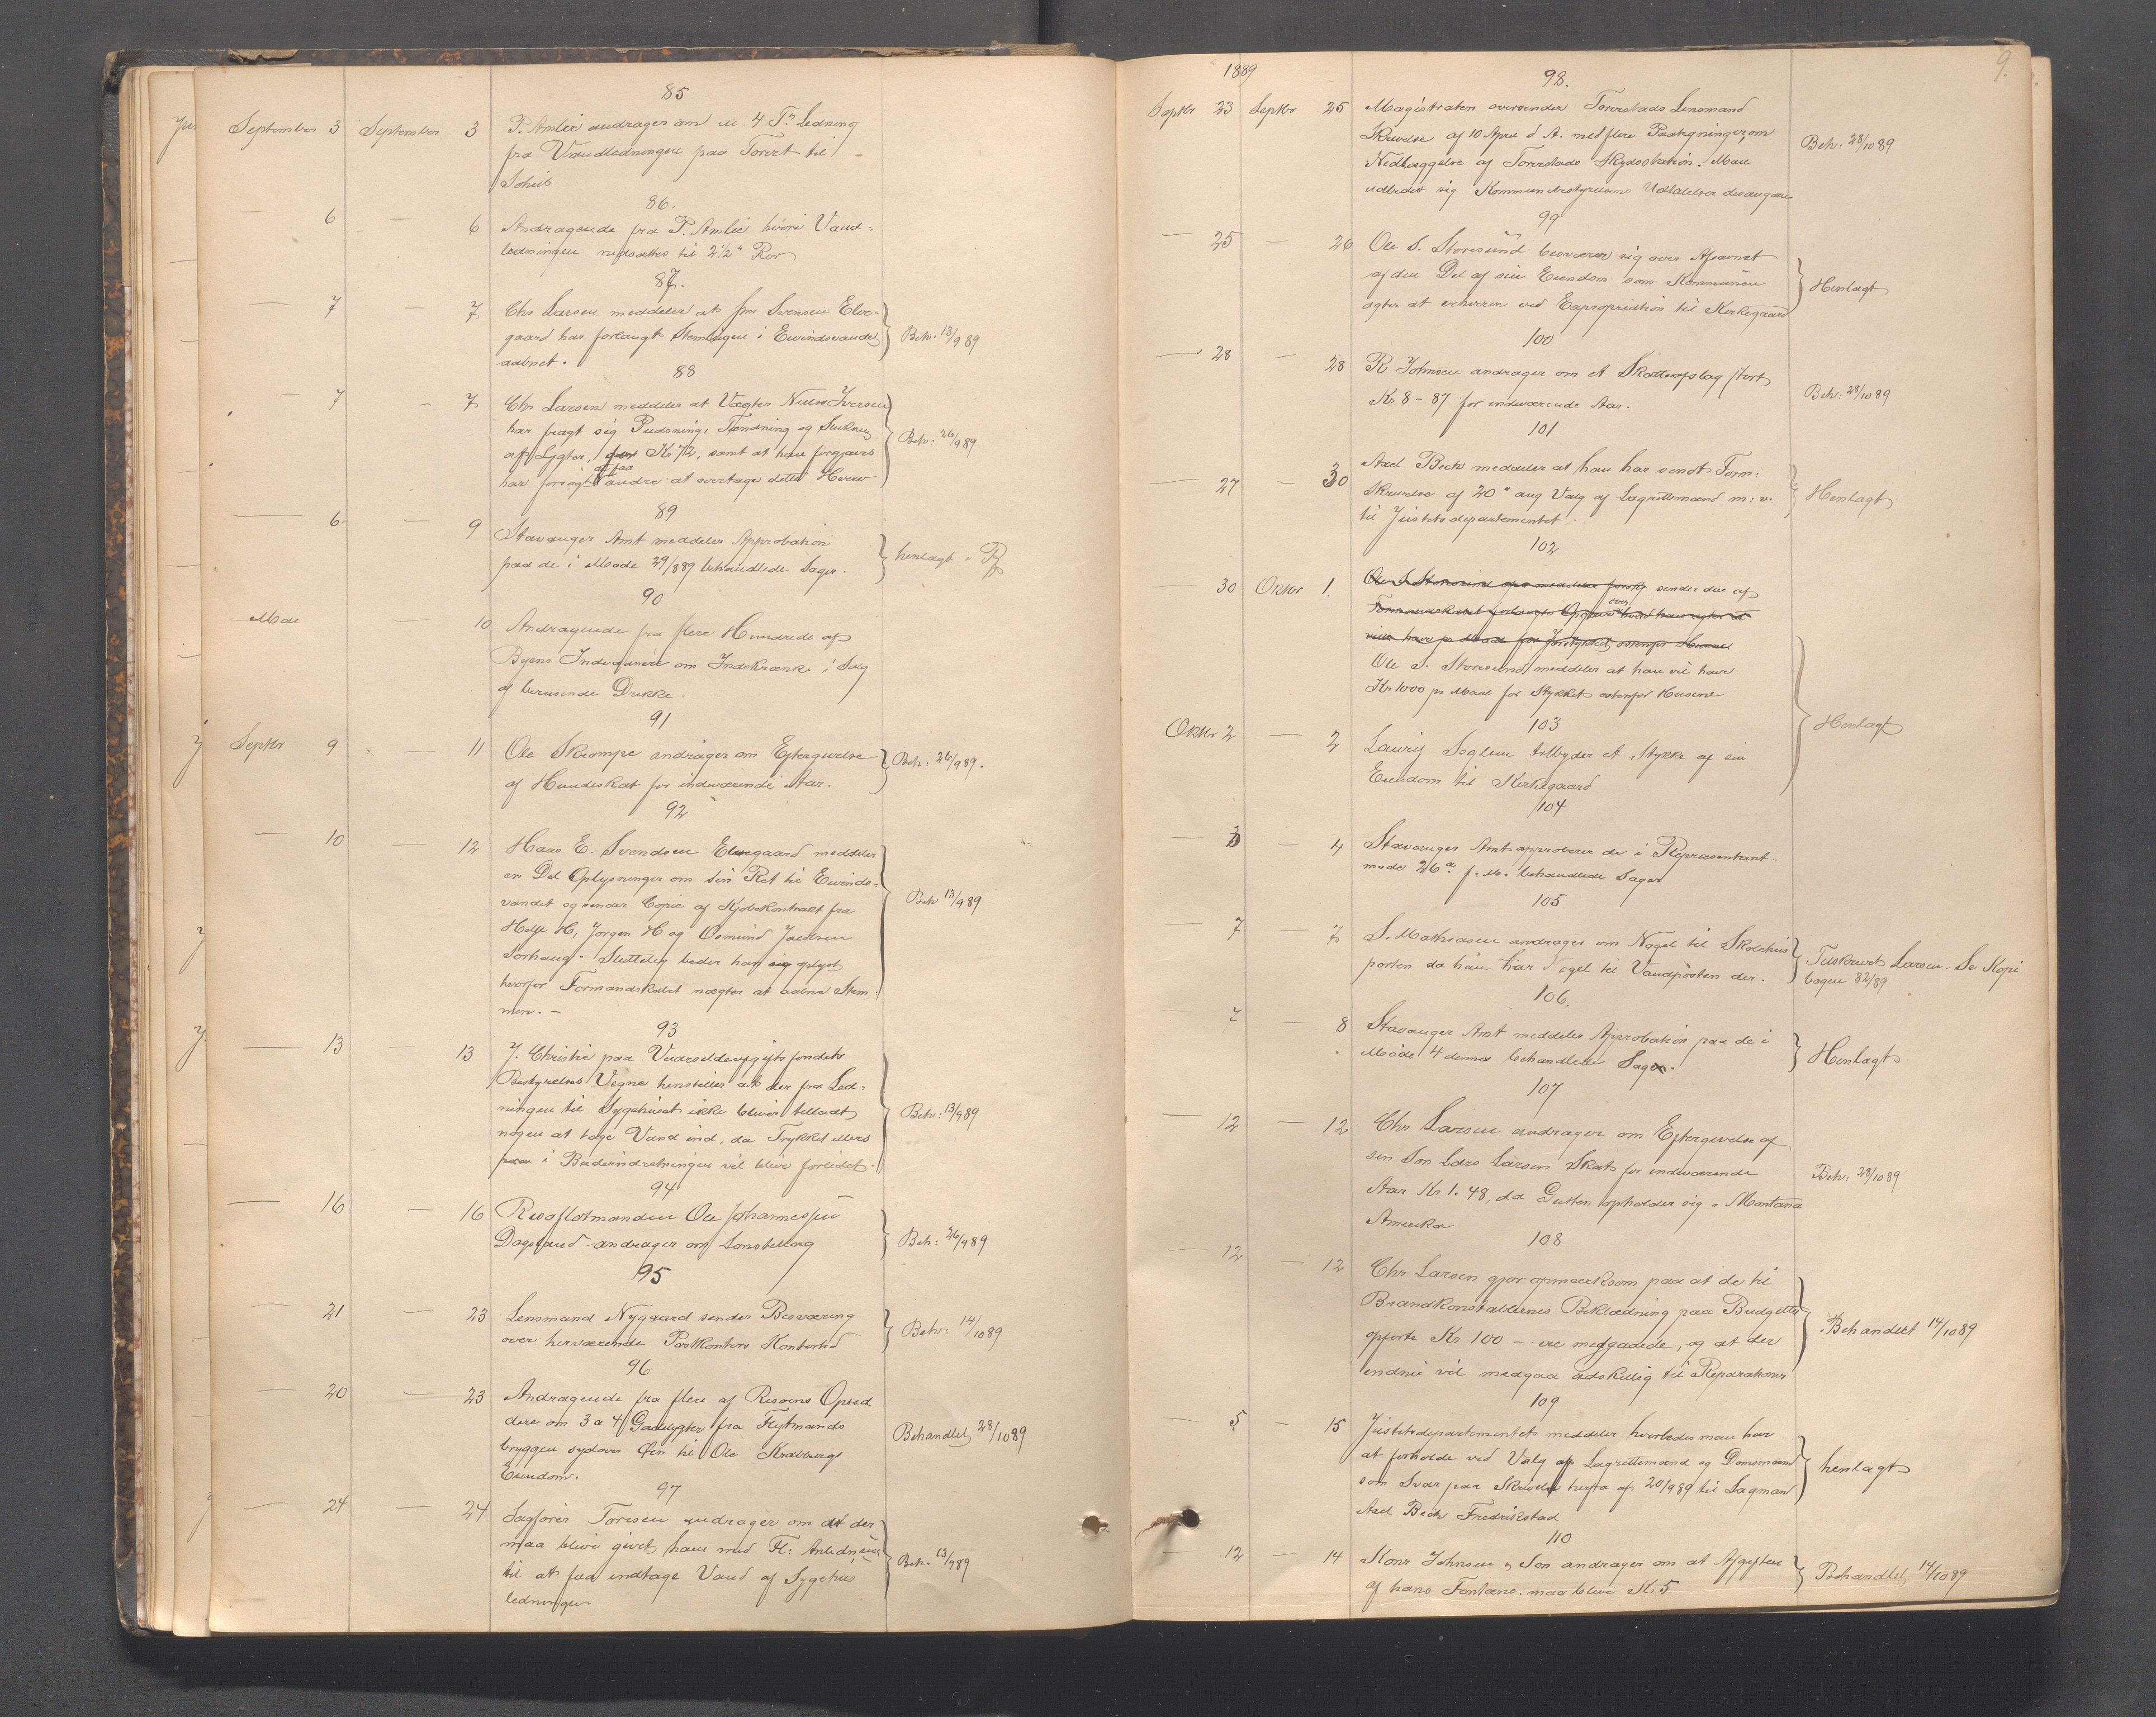 85
September 3 September 3 P. Amlie andrager om en 4 T. Ledning
fra Vandledningen paa Torvet til
86.
— 6 — 6 Andragende fra P. Amlie hvori Vand-
ledningen nedsættes til 2 1/2" Rør
87.
— 7 — 7 Chr Larsen meddeler at Svensen Elve-
gaard har forlangt Stemningen i Eivindsvandet Beh. 13/9 89
aabnet.
88
— 7 — 7 Chr Larsen meddeler at Vægter Niels Iversen
har fragt sig Pudsning, Tændning og Slukning Beh. 26/9 89
af Lygter, for Kr 72, samt at han forgjæves
har forsøgt at faa andre at overtage dette Hverv
89
— 6 — 9 Stavanger Amt meddeler Approbation
paa de i Møde 29/8 89 behandlede Sager. henlagt
90
10 Andragende fra flere Hundrede af
Byens Indvaanere om Indskrænk. i Salg
af berusende Drikke.
91
Septbr 9 — 11 Ole Skrompe andrager om Eftergivelse Beh: 26/9 89.
af Hundeskat for indværende Aar.
92
— 10 — 12 Hans E. Svendsen Elvegaard meddeler
en Del Oplysninger om sin Ret til Eivinds-
vandet og sender Copie af Kjøbekontrakt fra Beh 13/9 89
Helge H, Jørgen H og Osmund Jacobsen
Sørhaug. Sluttelig beder han sig oplyst
hvorfor Formandskabet nægter at aabne Stem-
men. —
93
— 13 — 13 J. Christie paa Vareseldeafgiftsfondets
Bestyrelses Vegne henstiller at der fra Led-
ningen til Sygehuset ikke bliver tilladt Beh: 13/9 89
nogen at tage Vand ind, da Trykket ellers
i Badeindretningen vil blive forlidet.
94
— 16 — 16 Risøflotmanden Ole Johannessen
Dagsland andrager om Lønstillæg Beh: 26/9 89
95
— 21 — 23 Lensmand Nygaard sender Besværing
over herværende Postkontors Kontortid Beh: 14/10 89
96
— 20 — 23 Andragende fra flere af Risøens Opsid
dere om 3 a 4 Gadelygter fra Flytmands
bryggen sydover Øen til Ole Kroebergs Behandlet 28/10 89
Eiendom.
97
— 24 — 24 Sagfører Toresen andrager om at der
maa blive givet ham med Fl: Anledning
til at faa indtage Vand af Sygehus Beh. 13/9 89
ledningen
9.
1889
98.
Septbr 23 Septbr 25 Magistraten oversender Torvestads Lensmand
Skrivelse af 10 April d. A. med flere Paategninger om
Nedlæggelse af Torvestads Skydsstation. Man Beh: 28/10 89
udbeder sig Kommunebestyrelsens Udtalelser desangaaende
99
— 25 — 26 Ole S. Storesund besværer sig over Afsavnet
af den Del af sin Eiendom som Kommunen Henlagt
agter at erhverve ved Expropriation til Kirkegaard
100
— 28 — 28 R Johnsen andrager om et Skatteafslag stort
Kr 8 - 87 for indværende Aar. Beh: 28/10 89
101
— 27 — 30 Axel Beck meddeler at han har sendt Form:
Skrivelse af 20 aug Valg af Lagrettemænd m: v. Henlagt
til Justitsdepartementet.
102
— 30 Oktbr 1. sender den af
Ole S. Storesund meddeler at han vil have
Kr 1000 pr Maal for Stykket ostenfor Husene
103
Oktbr 2 — 2 Lauritz Soglum tilbyder et Stykke af sin Henlagt
Eiendom til Kirkegaard
104
— 3 — 4 Stavanger Amt approberer de i Repræsentant-
møde 26de f. M. behandlede Sager
105
— 7 — 7 S. Mathiasen andrager om Nøgel til Skolehus
porten da han har Nøgel til Vandposten der. Tilskrevet Larsen. Se Kopi
bogen 32/89
106.
— 7 — 8 Stavanger Amt meddeler Approbation paa de i
Møde 4 dennes behandlede Sager. Henlagt
107
— 12 — 12 Chr Larsen andrager om Eftergivelse af
sin Søn Lars Larsen Skat for indværende
Aar Kr 1.48, da Gutten opholder sig i Montana Beh: 28/10 89
Amerika
108
— 12 — 12 Chr Larsen gjør opmærksom paa at de til
Brandkonstablernes Beklædning paa Budgettet
opførte Kr 100 — ere medgaaede, og at der Behandlet 14/10 89
endnu vil medgaa adskillig til Reparationer
109
— 5 — 15 Justitsdepartementet meddeler hvorledes man har
at forholde ved Valg af Lagrettemænd og Domsmænd henlagt
som Svar paa Skrivelse herfra af 20/9 89 til Lagmand
Axel Beck Fredrikstad
110
— 12 — 14 Konr Johnsen & Søn andrager om at Afgiften
af hans Fontæne maa blive Kr. 5 Behandlet 14/10 89